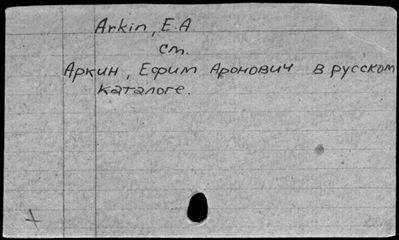 Arkin, E.A
см.
Аркин, Ефим Аронович в русском
каталоге.